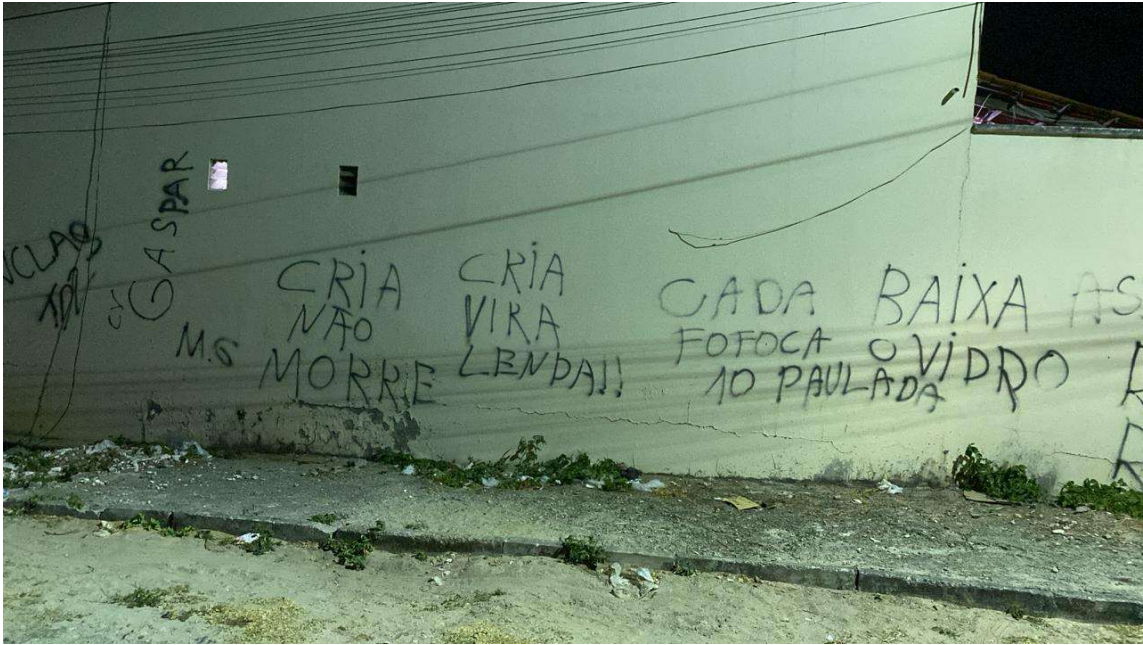 GASPAR
M.G
CRIA
NÃO
MORRE
CRIA
VIRA
LENDA!!
CADA
FOFOCA
10 PAULADA
BAIXA
O VIDRO